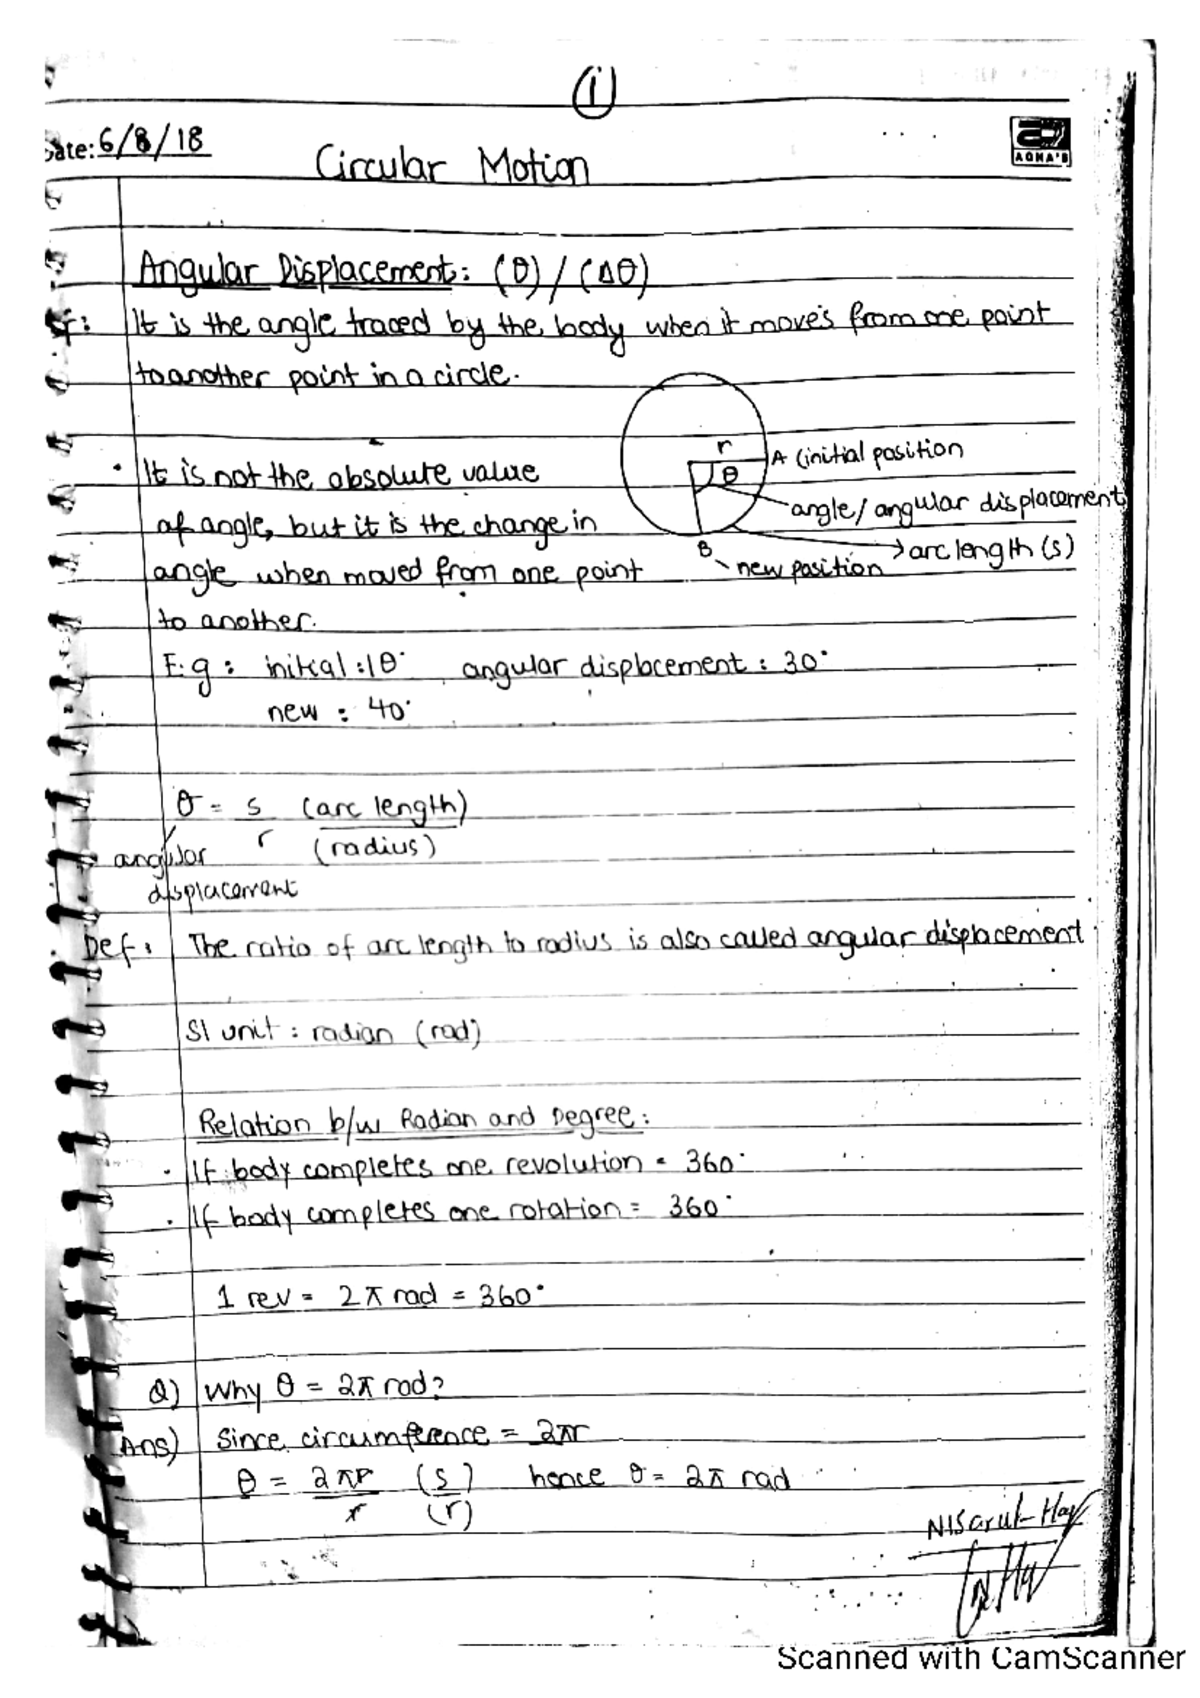 i
Date: 6/8/18
AQHA'S
Circular Motion
Angular Displacement: (θ) / (Δθ)
It is the angle traced by the body when it moves from one point
to another point in a circle.
r
A (initial position
θ
angle/ angular displacement
B
new position
arc length (s)
• It is not the absolute value
of angle, but it is the change in
angle when moved from one point
to another.
E.g: initial :10° angular displacement : 30°
new : 40°
θ = s (arc length)
r (radius)
angular
displacement
Def: The ratio of arc length to radius is also called angular displacement
SI unit : radian (rad)
Relation b/w Radian and Degree:
• If body completes one revolution = 360°
• If body completes one rotation = 360°
1 rev = 2π rad = 360°
Q) Why θ = 2π rad?
Ans) Since circumference = 2πr
θ = 2πr (s) hence θ = 2π rad
r (r)
Nisarul-Haq
Scanned with CamScanner